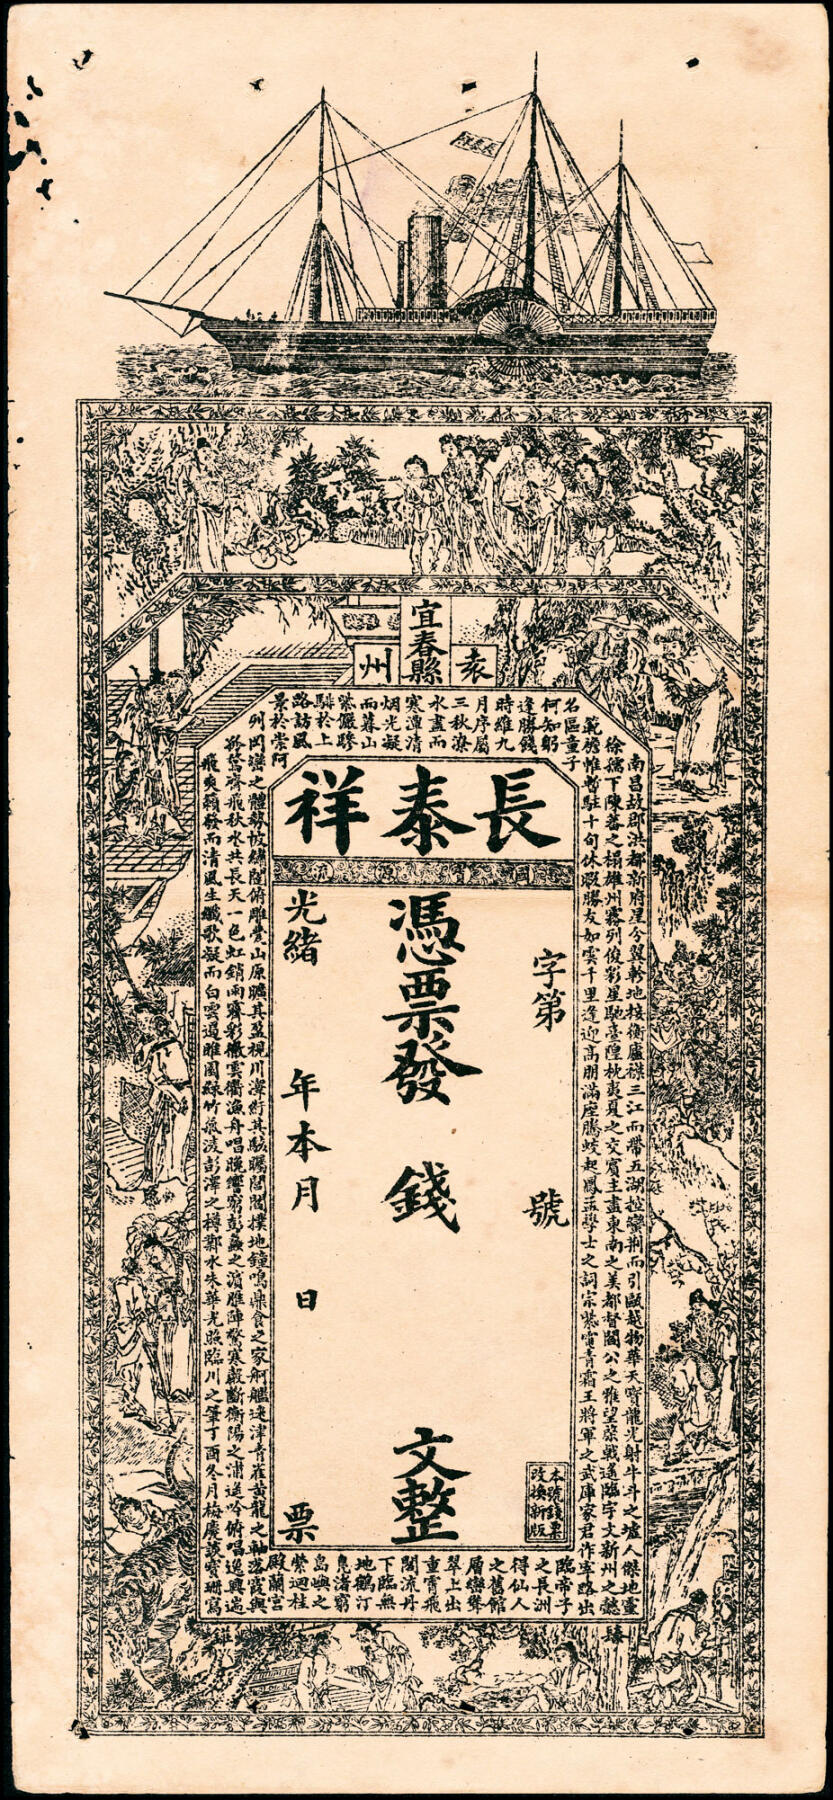 宜春縣
袁州
長泰祥
國寶源流
字第 號
憑票發 錢 文整
光緒 年本月 日 票
本號錢票
改換新版
南昌故郡洪都新府星分翼軫地接衡廬襟三江而帶五湖控蠻荊而引甌越物華天寶龍光射牛斗之墟人傑地靈
徐孺下陳蕃之榻雄州霧列俊彩星馳臺隍枕夷夏之交賓主盡東南之美都督閻公之雅望棨戟遙臨宇文新州之懿
範襜帷暫駐十旬休暇勝友如雲千里逢迎高朋滿座騰蛟起鳳孟學士之詞宗紫電青霜王將軍之武庫家君作宰路出
名區童子
何知躬
逢勝餞
時維九
月序屬
三秋潦
水盡而
寒潭清
烟光凝
而暮山
紫儼驂
騑於上
路訪風
景於崇阿
臨帝子
之長洲
得仙人
之舊館
層巒聳
翠上出
重霄飛
閣流丹
下臨無
地鶴汀
鳧渚窮
島嶼之
縈迴桂
殿蘭宮
列岡巒之體勢披繡闥俯雕甍山原曠其盈視川澤紆其駭矚閭閻撲地鐘鳴鼎食之家舸艦迷津青雀黃龍之軸落霞與
孤鶩齊飛秋水共長天一色虹銷雨霽彩徹雲衢漁舟唱晚響窮彭蠡之濱雁陣驚寒聲斷衡陽之浦遙吟俯唱逸興遄
飛爽籟發而清風生纖歌凝而白雲遏睢園綠竹氣淩彭澤之樽鄴水朱華光照臨川之筆丁酉冬月梅慶萬寶珊寫